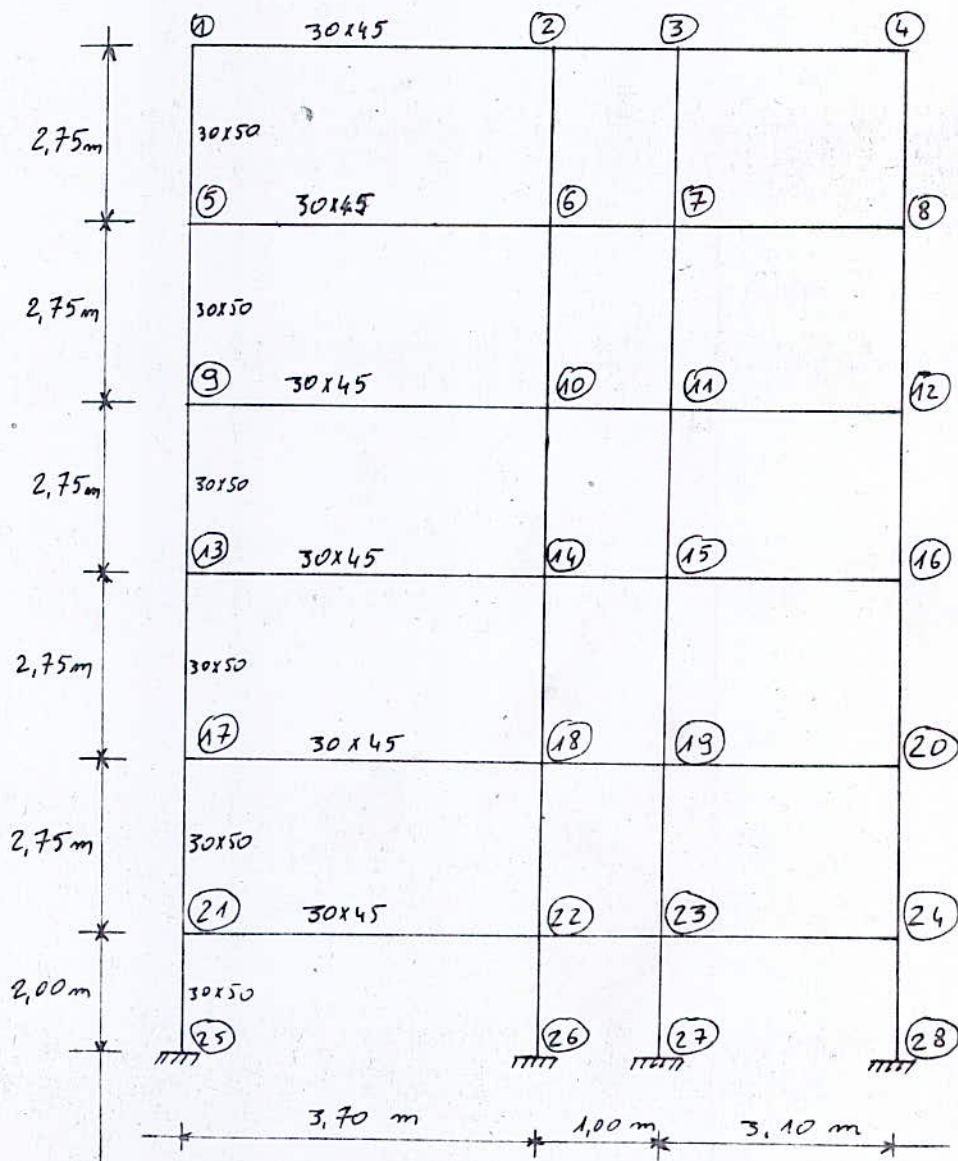 1 30x45 2 3 4
2,75m 30x50
5 30x45 6 7 8
2,75m 30x50
9 30x45 10 11 12
2,75m 30x50
13 30x45 14 15 16
2,75m 30x50
17 30x45 18 19 20
2,75m 30x50
21 30x45 22 23 24
2,00m 30x50
25 26 27 28
3,70 m 1,00 m 3,10 m